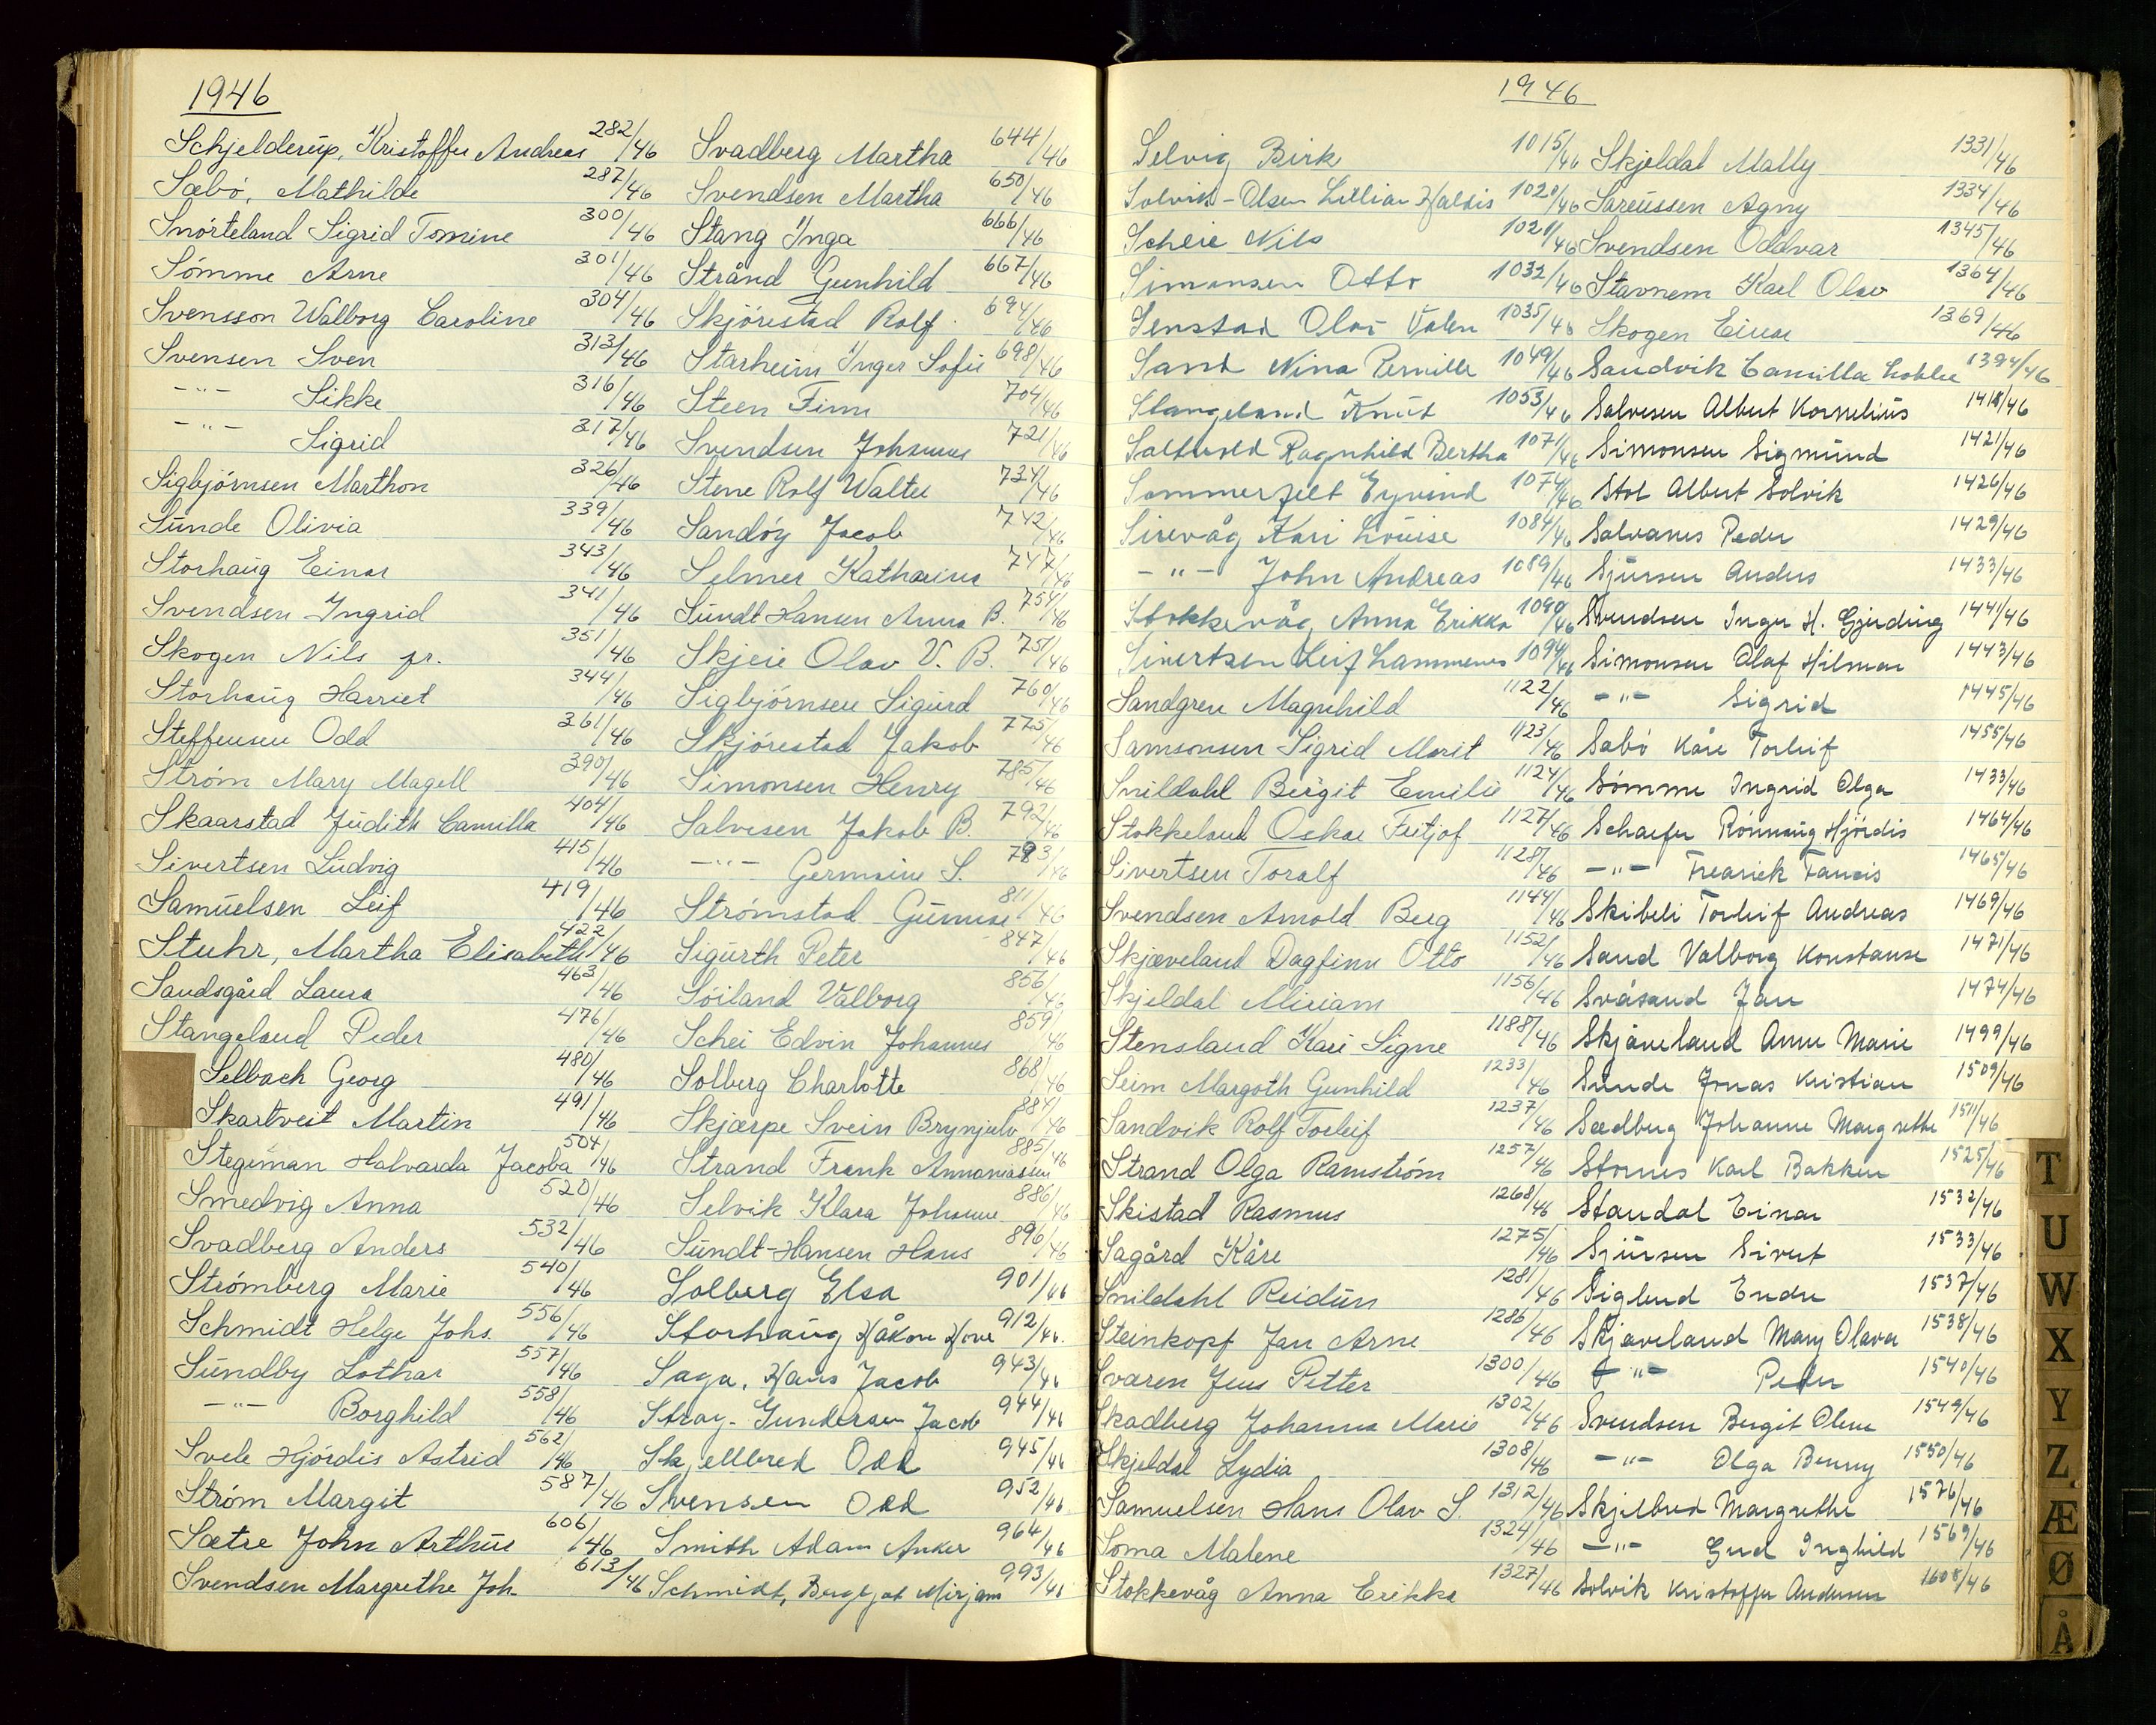 1946
Schjelderup, Kristoffer Andreas 282/46
Sæbö, Mathilde 287/46
Snörteland Sigrid Tomine 300/46
Sömme Arne 301/46
Svensson Walborg Caroline 304/46
Svensen Sven 313/46
-"- Sikke 316/46
-"- Sigrid 317/46
Sigbjörnsen Marthon 326/46
Sunde Olivia 339/46
Storhaug Einar 343/46
Svendsen Ingrid 341/46
Skogen Nils jr. 351/46
Storhaug Harriet 344/46
Steffensen Odd 361/46
Ström Mary Magell 390/46
Skaarstad Judith Camilla 404/46
Sivertsen Ludvig 415/46
Samuelsen Leif 419/46
Stuhr, Martha Elisabeth 422/46
Sandsgård Laura 463/46
Stangeland Peder 476/46
Selbach Georg 480/46
Skartveit Martin 491/46
Stegeman Halvarda Jacoba 504/46
Smedvig Anna 520/46
Svadberg Anders 532/46
Strömberg Marie 540/46
Schmidt Helge Johs. 556/46
Sundby Lothar 557/46
-"- Borghild 558/46
Svele Hjördis Astrid 562/46
Ström Margit 587/46
Sætre John Arthur 606/46
Svendsen Margrethe Joh. 613/46
Svadberg Martha 644/46
Svendsen Martha 650/46
Stang Inga 666/46
Strånd Gunhild 667/46
Skjörestad Rolf 694/46
Starheim Inger Sofie 698/46
Steen Finn 704/46
Svendsen Johannes 721/46
Stene Rolf Walter 734/46
Sandöy Jacob 742/46
Selmer Katharina 747/46
Sundt Hansen Anna B. 754/46
Skjeie Olav V. B. 751/46
Sigbjörnsen Sigurd 760/46
Skjörestad Jakob 775/46
Simonsen Henry 785/46
Salvesen Jakob B. 792/46
-"- Germaine S. 793/46
Strömstad Gunnar 811/46
Sigurth Peter 847/46
Söiland Valborg 856/46
Schei Edvin Johannes 859/46
Solberg Charlotte 868/46
Skjærpe Svein Brynjulv 884/46
Strand Frank Annaniassen 885/46
Selvik Klara Johanne 886/46
Sundt-Hansen Hans 896/46
Solberg Elsa 901/46
Storhaug Håkon Hove 912/46
Saga, Hans Jacob 943/46
Stray-Gundersen Jacob 944/46
Skjellbred Odd 945/46
Svensen Odd 952/46
Smith Adam Anker 964/46
Schmidt, Bergljot Mirjam 993/46
1946
Selvig Birk 1015/46
Solvik-Olsen Lillian Haldis 1020/46
Scheie Nils 1021/46
Simonsen Otto 1032/46
Senstad Olav Valen 1035/46
Sand Nina Pernille 1049/46
Stangeland Knut 1053/46
Saltvold Ragnhild Bertha 1071/46
Sommerfelt Eyvind 1074/46
Sirevåg Kari Louise 1084/46
-"- John Andreas 1089/46
Stokkevåg Anna Erikka 1090/46
Sivertsen Leif Lammenes 1094/46
Sandgren Magnhild 1122/46
Samsonsen Sigrid Marit 1123/46
Snildahl Bergit Emilie 1124/46
Stokkeland Oskar Fritjof 1127/46
Sivertsen Toralf 1128/46
Svendsen Arnold Berg 1144/46
Skjæveland Dagfinn Otto 1152/46
Skjeldal Miriam 1156/46
Stensland Kari Signe 1188/46
Seim Margoth Gunhild 1233/46
Sandvik Rolf Torleif 1237/46
Strand Olga Ramström 1257/46
Skistad Rasmus 1268/46
Sagård Kåre 1275/46
Snildahl Reidun 1281/46
Steinkopf Jan Arne 1286/46
Svaren Jens Petter 1300/46
Skadberg Johanna Marie 1302/46
Skjeldal Lydia 1308/46
Samuelsen Hans Olav S. 1312/46
Soma Malene 1324/46
Stokkevåg Anna Erikka 1327/46
Skjeldal Mally 1331/46
Sareussen Agny 1334/46
Svendsen Oddvar 1345/46
Stavnem Karl Olav 1364/46
Skogen Einar 1369/46
Sandvik Camilla 1394/46
Salvesen Albert Kornelius 1418/46
Simonsen Sigmund 1421/46
Stol Albert Solvik 1426/46
Salvanes Peder 1429/46
Sjursen Anders 1433/46
Svendsen Inger H. Gjerding 1441/46
Simonsen Olaf Hilmar 1443/46
-"- Sigrid 1445/46
Sabö Kåre Torleif 1455/46
Sömme Ingrid Olga 1433/46
Schaefer Rönnaug Hjördis 1464/46
-"- Fredrick Francis 1465/46
Skibeli Torleif Andreas 1469/46
Sand Valborg Konstanse 1471/46
Svåsand Jan 1474/46
Skjæveland Anne Marie 1499/46
Sunde Jonas Kristian 1509/46
Sædberg Johanne Margrethe 1511/46
Stornes Karl Bakken 1525/46
Standal Einar 1532/46
Sjursen Sivert 1533/46
Siglend Endre 1537/46
Skjæveland Mary Olava 1538/46
-"- Peder 1540/46
Svendsen Bergit Olene 1549/46
-"- Olga Benny 1550/46
Skjelbred Margrethe 1576/46
-"- Gud Inghild 1569/46
Solvik Kristoffer Andersen 1608/46
T
U
W
X
Y
Z
Æ
Ø
Å